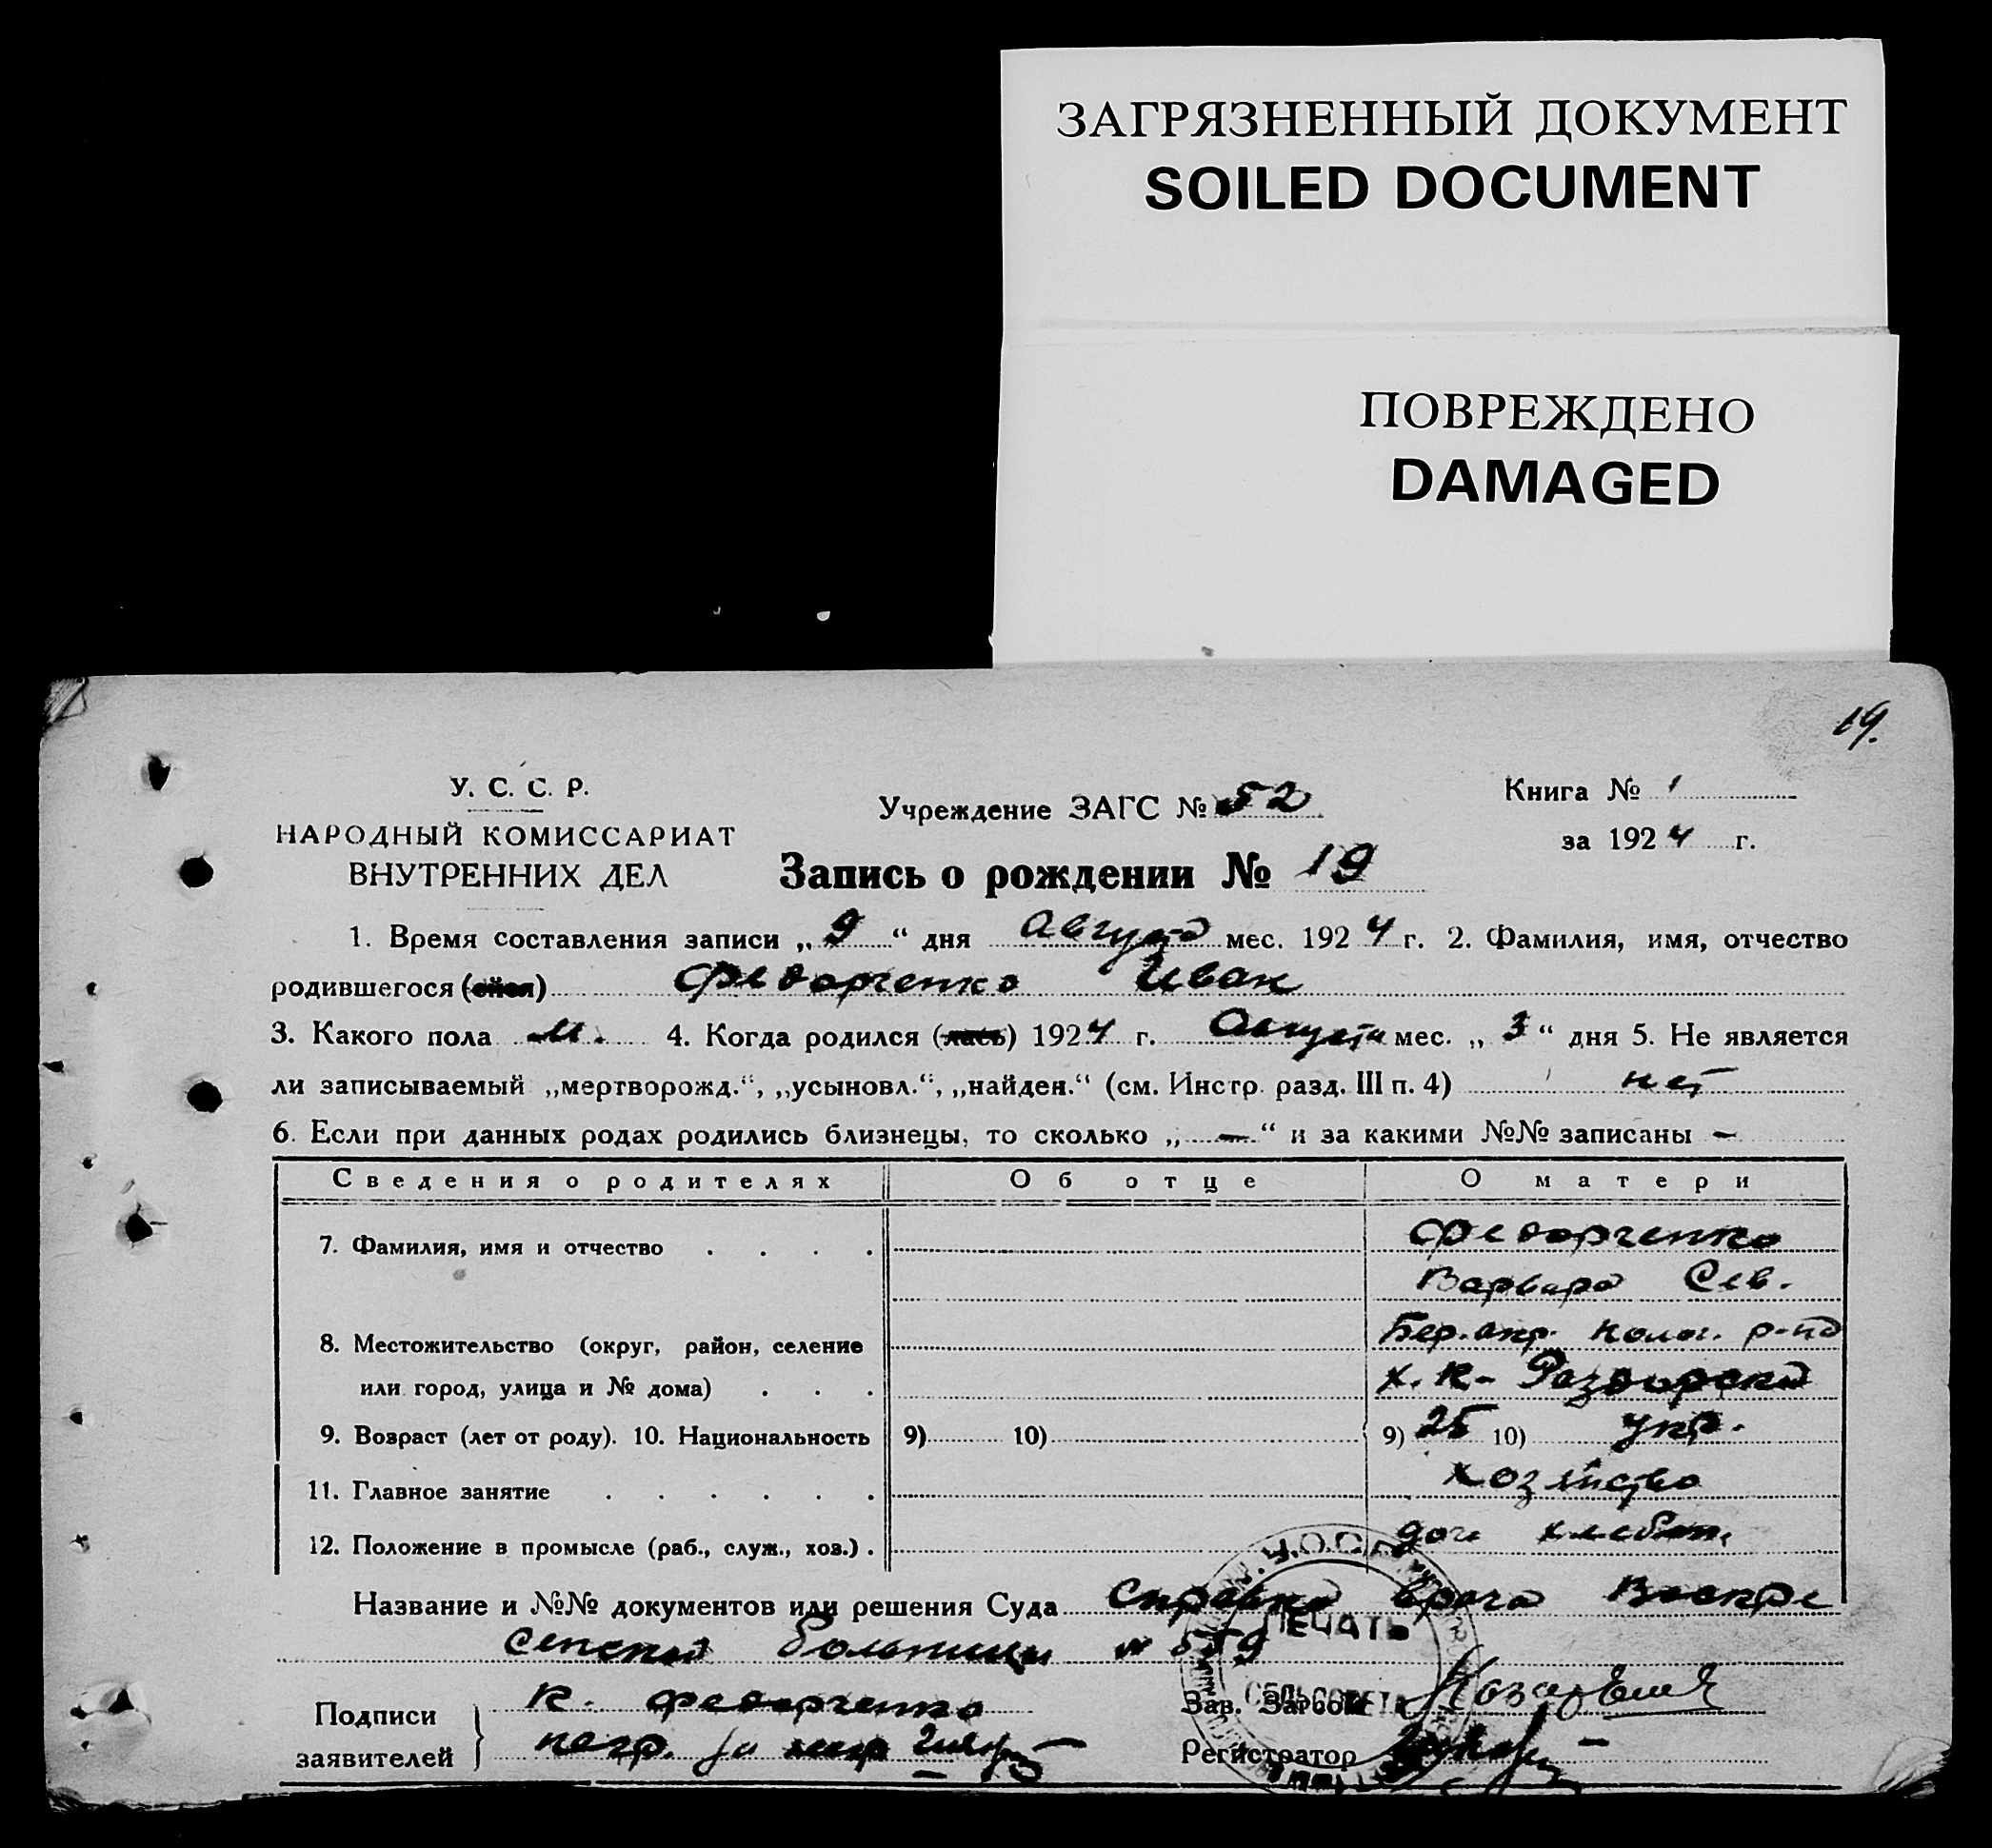 ЗАГРЯЗНЕННЫЙ ДОКУМЕНТ
SOILED DOCUMENT
ПОВРЕЖДЕНО
DAMAGED
19.
У. С. С. Р.
НАРОДНЫЙ КОМИССАРИАТ
ВНУТРЕННИХ ДЕЛ
Учреждение ЗАГС № 52
Книга № 1
за 1924 г.
Запись о рождении № 19
1. Время составления записи „ 9 “ дня Августа мес. 1924 г. 2. Фамилия, имя, отчество
родившегося (ейся) Федорченко Иван
3. Какого пола м. 4. Когда родился (лась) 1924 г. Августа мес. „ 3 “ дня 5. Не является
ли записываемый „мертворожд.“, „усыновл.“, „найден.“ (см. Инстр. разд. III п. 4) нет
6. Если при данных родах родились близнецы, то сколько „ — “ и за какими №№ записаны —
Сведения о родителях Об отце О матери
7. Фамилия, имя и отчество . . . . Федорченко
Варвара Сев.
8. Местожительство (округ, район, селение Бер. окр. р-на
или город, улица и № дома) . . . х. К-
9. Возраст (лет от роду). 10. Национальность 9) 10) 9) 25 10) укр.
11. Главное занятие . . . . . . хозяйство
12. Положение в промысле (раб., служ., хоз.) .
Название и №№ документов или решения Суда Справка врача Воскре
сенской больницы № 559
ПЕЧАТЬ
СЕЛЬСОВЕТА
Подписи К. Федорченко
заявителей негр.
Зав. Загсом
Регистратор